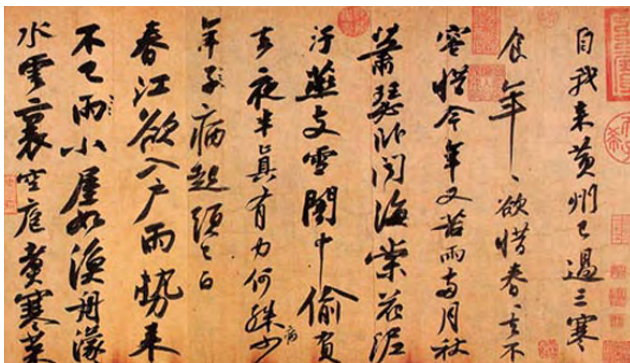 自我来黄州已過三寒
食年〻欲惜春〻去不
容惜今年又苦雨兩月秋
蕭瑟卧聞海棠花泥
汙燕支雪闇中偷負
去夜半真有力何殊少病
年子病起頭已白
春江欲入户雨勢来
不已雨小屋如漁舟濛
水雲裏空庖煮寒菜